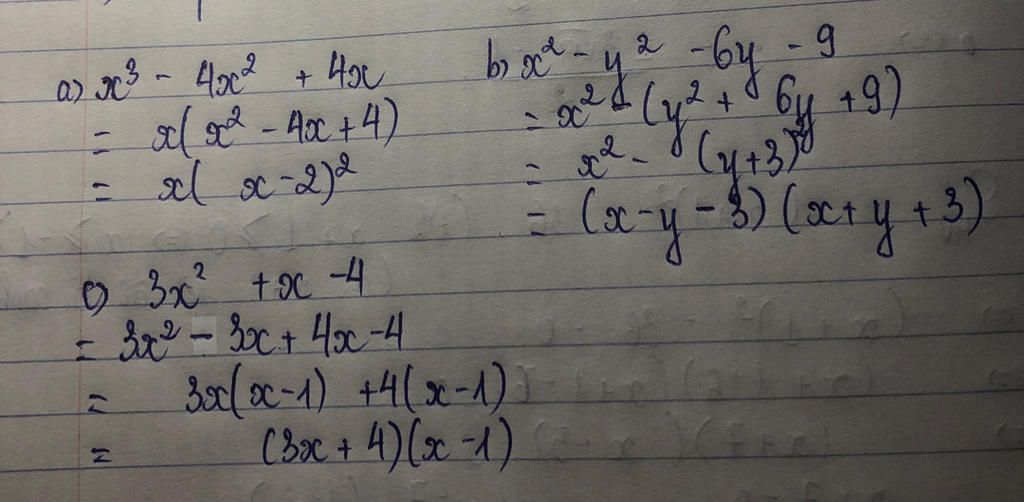 a) x³ - 4x² + 4x
= x(x² - 4x + 4)
= x(x - 2)²
b) x² - y² - 6y - 9
= x² - (y² + 6y + 9)
= x² - (y + 3)²
= (x - y - 3)(x + y + 3)
c) 3x² + x - 4
= 3x² - 3x + 4x - 4
= 3x(x - 1) + 4(x - 1)
= (3x + 4)(x - 1)